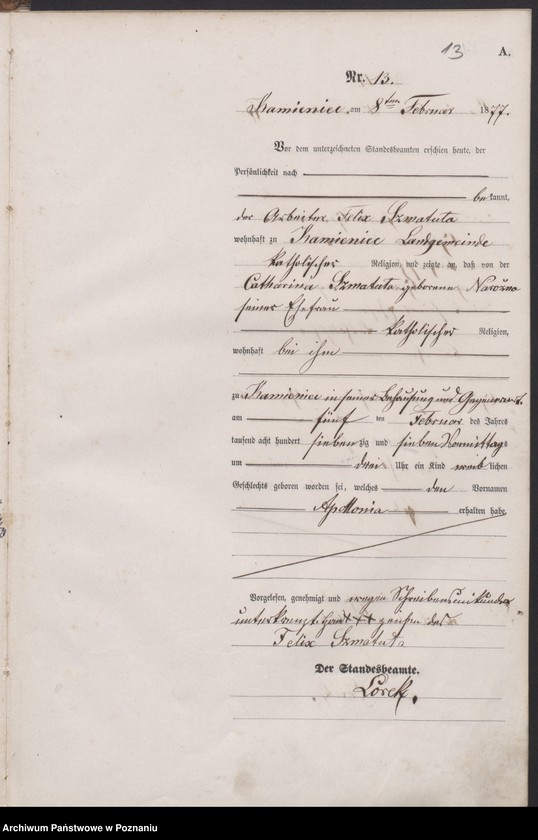 13 A.
Nr. 13.
Kamieniec, am 8ten Februar 1877.
Vor dem unterzeichneten Standesbeamten erschien heute, der
Persönlichkeit nach
bekannt,
der Arbeiter Felix Szmatuta
wohnhaft zu Kamieniec Landgemeinde
katholischer Religion, und zeigte an, daß von der
Catharina Szmatuta geborene Narożna
seiner Ehefrau
katholischer Religion,
wohnhaft bei ihm
zu Kamieniec in seiner Behausung und Gegenwart
am fünf ten Februar des Jahres
tausend acht hundert siebenzig und sieben Vormittags
um drei Uhr ein Kind weiblichen
Geschlechts geboren worden sei, welches den Vornamen
Apollonia erhalten habe.
Vorgelesen, genehmigt und wegen Schreibensunkunde
unterkreuzt. Handzeichen des
Felix Szmatuta
Der Standesbeamte.
Archiwum Państwowe w Poznaniu